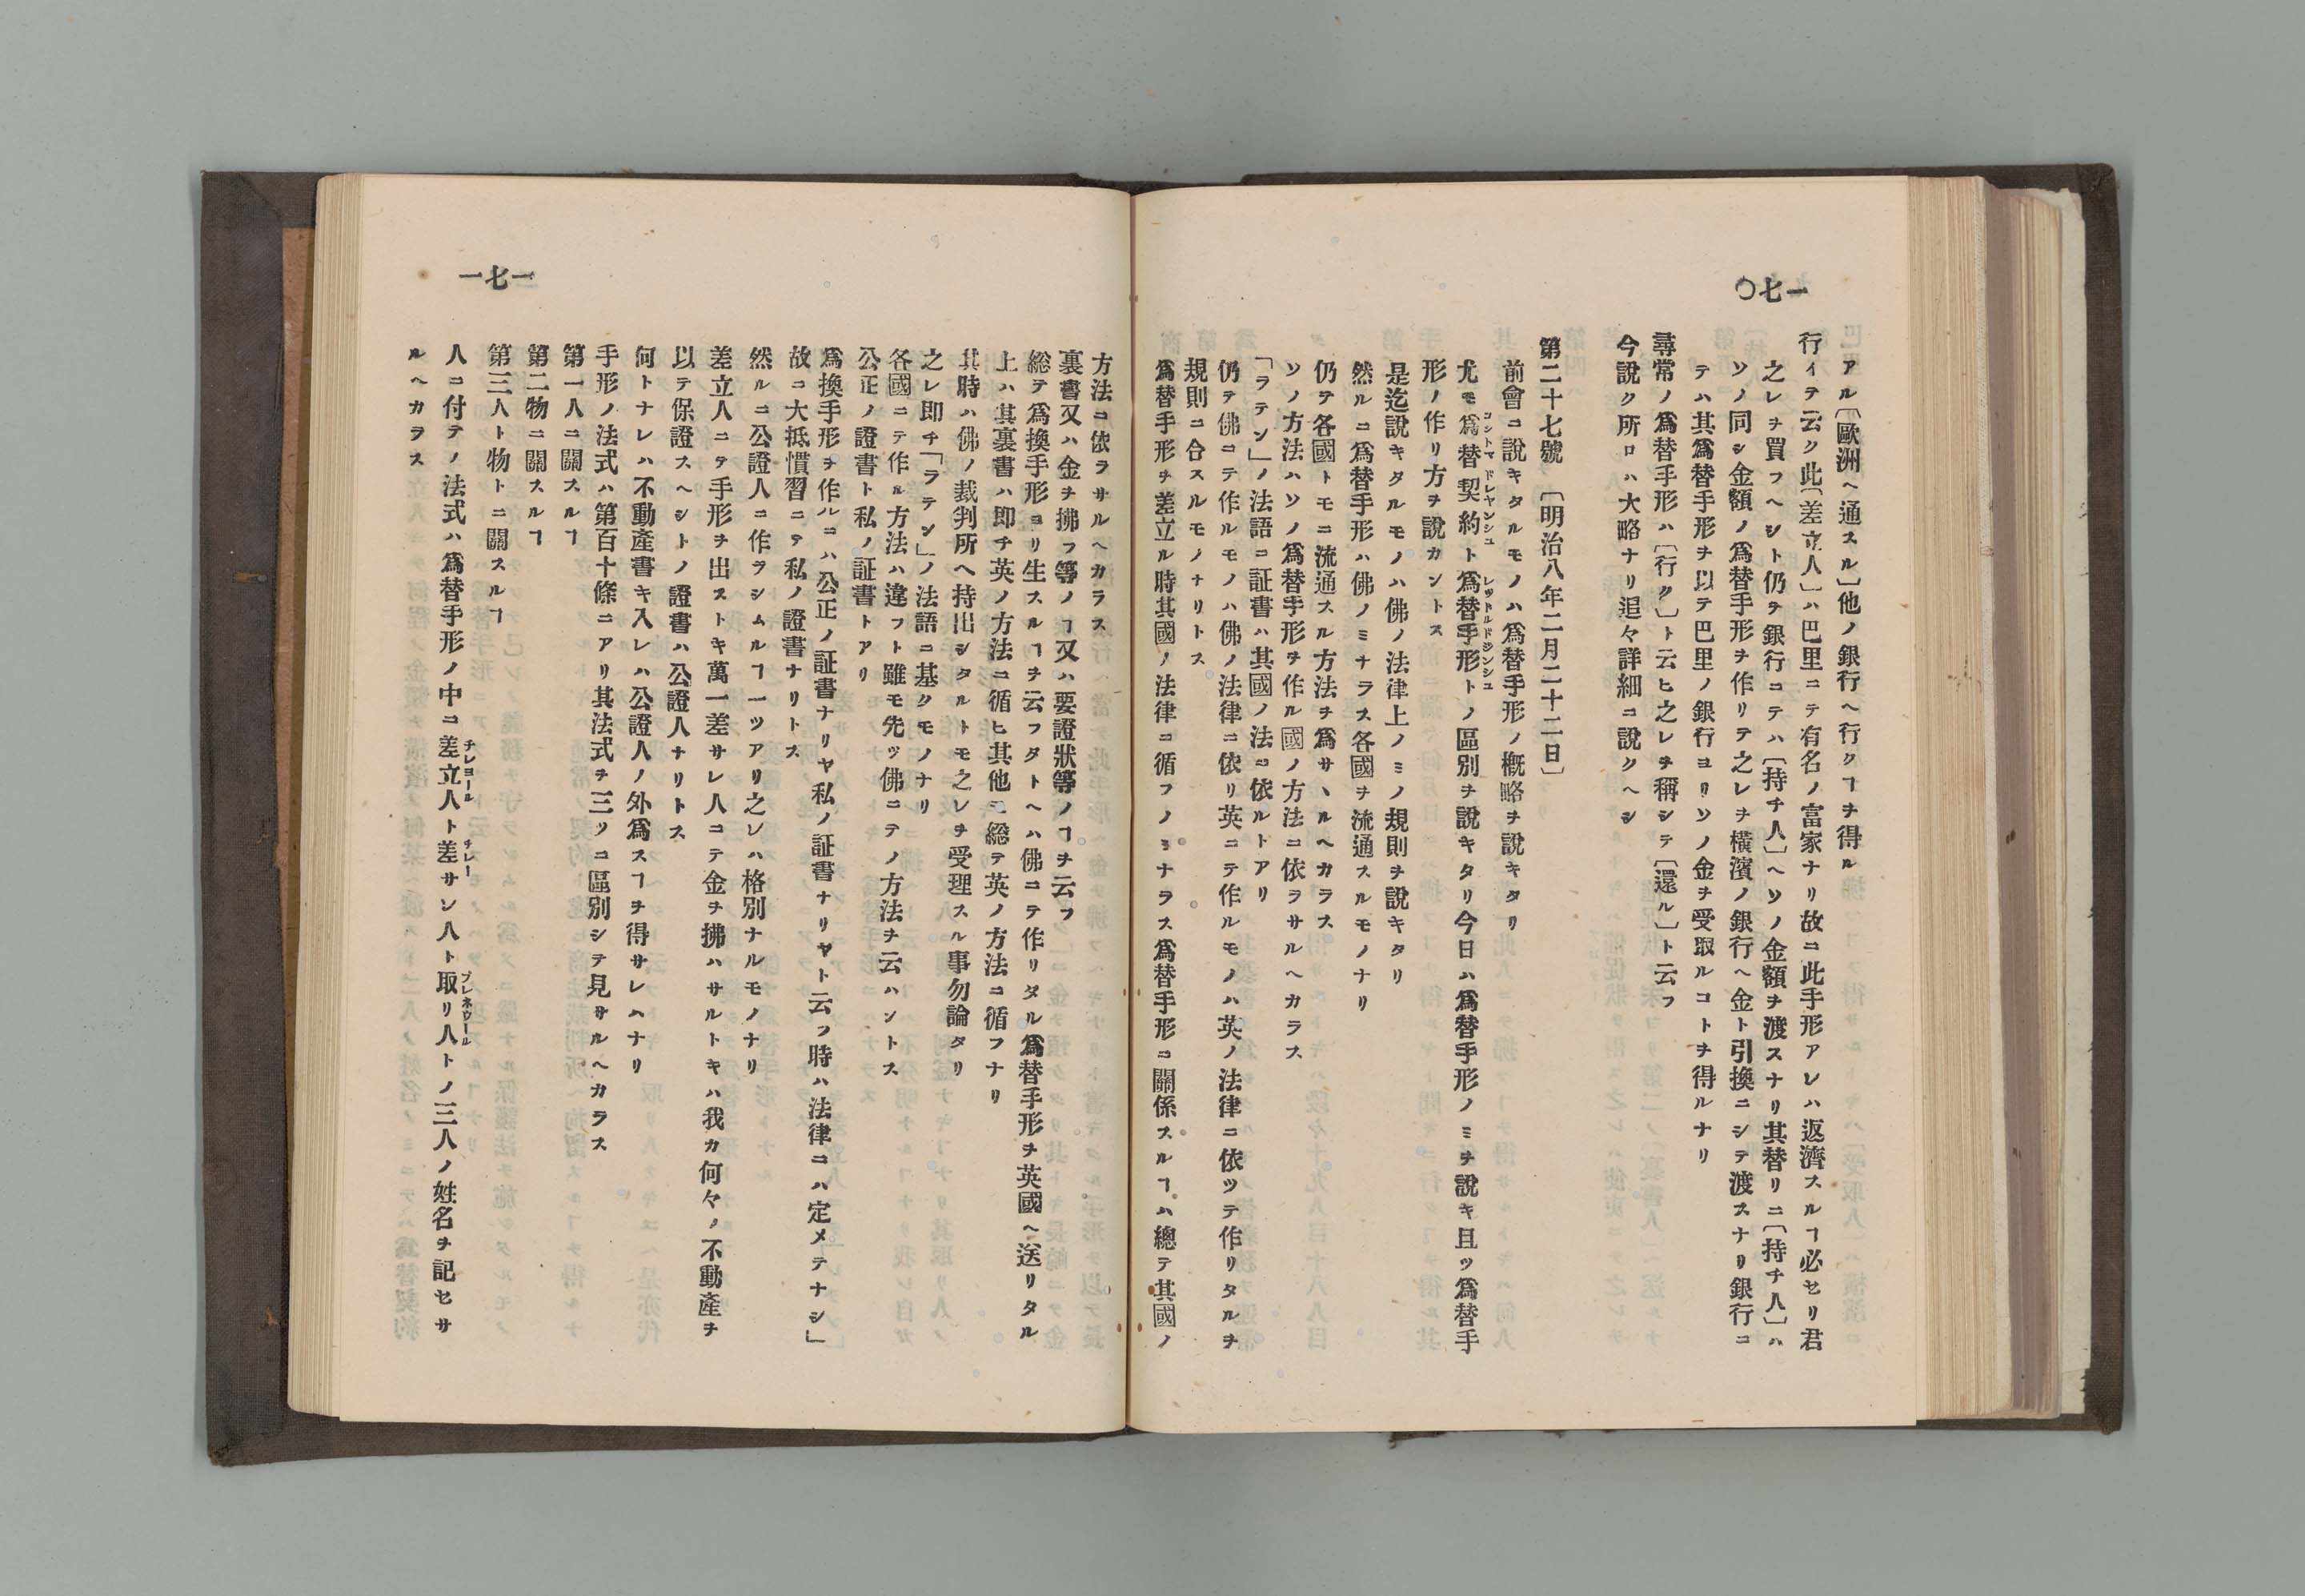 一七〇
アル〔歐洲ヘ通スル〕他ノ銀行ヘ行クヿヲ得ル
行イテ云ク此〔差立人〕ハ巴里ニテ有名ノ富家ナリ故ニ此手形アレハ返濟スルヿ必セリ君
之レヲ買フヘシト仍ヲ銀行ニテハ〔持チ人〕ヘソノ金額ヲ渡スナリ其替リニ〔持チ人〕ハ
ソノ同シ金額ノ爲替手形ヲ作リテ之レヲ横濱ノ銀行ヘ金ト引換ニシテ渡スナリ銀行ニ
テハ其爲替手形ヲ以テ巴里ノ銀行ヨリソノ金ヲ受取ルコトヲ得ルナリ
尋常ノ爲替手形ハ〔行ク〕ト云ヒ之レヲ稱シテ〔還ル〕ト云フ
今説ク所ロハ大略ナリ追々詳細ニ説クヘシ
第二十七號　〔明治八年二月二十二日〕
前會ニ説キタルモノハ爲替手形ノ概略ヲ説キタリ
尤モ爲替契約ト爲替手形トノ區別ヲ説キタリ今日ハ爲替手形ノミヲ説キ且ツ爲替手
形ノ作リ方ヲ説カントス
是迄説キタルモノハ佛ノ法律上ノミノ規則ヲ説キタリ
然ルニ爲替手形ハ佛ノミナラス各國ヲ流通スルモノナリ
仍ヲ各國トモニ流通スル方法ヲ爲サヽルヘカラス
ソノ方法ハソノ爲替手形ヲ作ル國ノ方法ニ依ラサルヘカラス
「ラテン」ノ法語ニ証書ハ其國ノ法ニ依ルトアリ
仍テ佛ニテ作ルモノハ佛ノ法律ニ依リ英ニテ作ルモノハ英ノ法律ニ依ツテ作リタルヲ
規則ニ合スルモノナリトス
爲替手形ヲ差立ル時其國ノ法律ニ循フノミナラス爲替手形ニ關係スルヿハ總テ其國ノ
一七一
方法ニ依ラサルヘカラス
裏書又ハ金ヲ拂フ等ノヿ又ハ要證狀等ノヿヲ云フ
総テ爲換手形ヨリ生スルヿヲ云フタトヘハ佛ニテ作リタル爲替手形ヲ英國ヘ送リタル
上ハ其裏書ハ即チ英ノ方法ニ循ヒ其他ニ総テ英ノ方法ニ循フナリ
其時ハ佛ノ裁判所ヘ持出シタルトモ之レヲ受理スル事勿論タリ
之レ即チ「ラテン」ノ法語ニ基クモノナリ
各國ニテ作ル方法ハ違フト雖モ先ツ佛ニテノ方法ヲ云ハントス
公正ノ證書ト私ノ証書トアリ
爲換手形ヲ作ルニハ公正ノ証書ナリヤ私ノ証書ナリヤト云フ時ハ法律ニハ定メテナシ」
故ニ大抵慣習ニテ私ノ證書ナリトス
然ルニ公證人ニ作ラシムルヿ一ツアリ之レハ格別ナルモノナリ
差立人ニテ手形ヲ出ストキ萬一差サレ人ニテ金ヲ拂ハサルトキハ我カ何々ノ不動產ヲ
以テ保證スヘシトノ證書ハ公證人ナリトス
何トナレハ不動產書キ入レハ公證人ノ外爲スヿヲ得サレハナリ
手形ノ法式ハ第百十條ニアリ其法式ヲ三ツニ區別シテ見サルヘカラス
第一人ニ關スルヿ
第二物ニ關スルヿ
第三人ト物トニ關スルヿ
人ニ付テノ法式ハ爲替手形ノ中ニ差立人ト差サレ人ト取リ人トノ三人ノ姓名ヲ記セサ
ルヘカラス